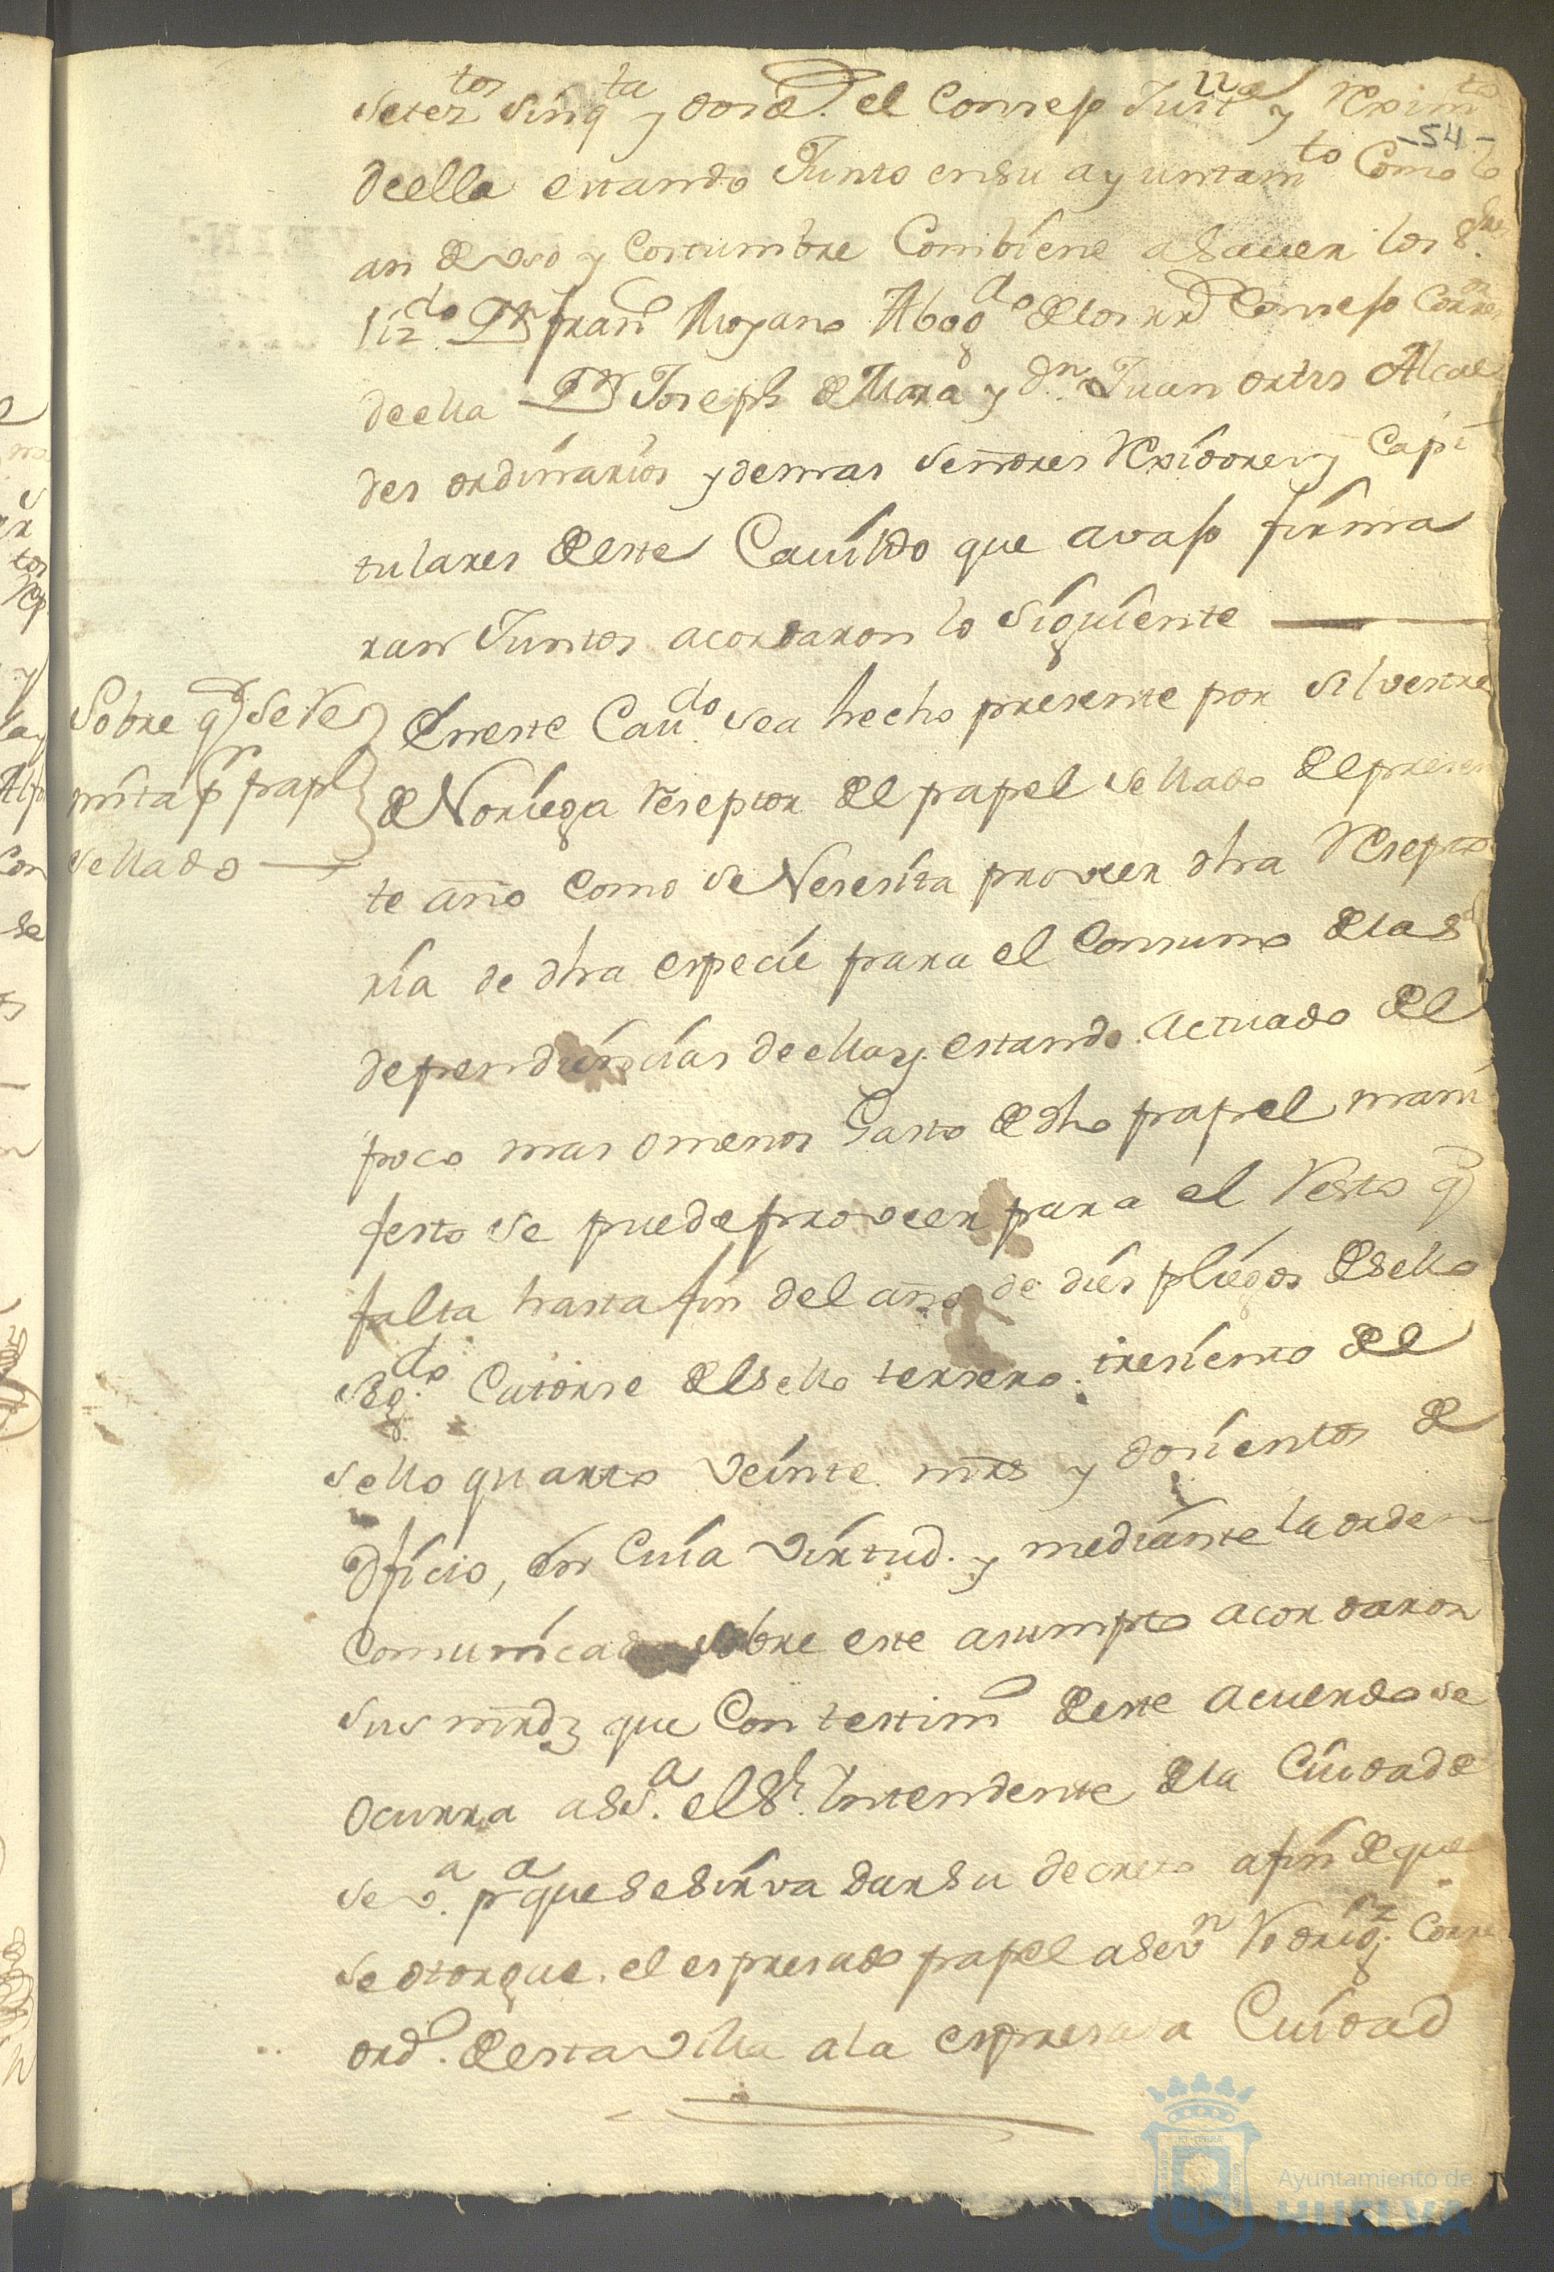 setez.tos sinq.ta y dos a. el Consejo Just.a y Reximto
- 54 -
de ella estando Junto en su ayuntam.to Como lo
an de uso y costumbre Combiene a Sauer los S.res
liz.do Dn fran.co Moyano Abog.do de los rr.s Consejo Corre.or
de ella Dn Joseph de Mora y Dn Juan ortis Alcal
des ordinarios y demas señores Rexidores y Capi
tulares de este Cauildo que avajo firma
ran Juntos acordaron lo siguiente
Sobre q se Re
mita pr papl
sellado
En este Cau.do sea hecho presente por silvestre
de Noriega reseptor del papel sellado del presen
te año como se Nesesita proveer dha Resepto
ria de dha especie para el Consumo de las
dependiencias de ella y estando actuado del
poco mas o menos Gasto de dho papel mani
festo se puede proveer para el Resto q
falta hasta fin del año de dies pliegos de sello
seg.do Catorse del sello tersero tresiento del
sello quarto veinte mrs y dosientos de
Oficio, en Cuia virtud. y mediante la orden
Comunicada sobre este asumpto acordaron
sus mrdz que Con testim.o de este acuerdo se
ocurra a S.S.a el Sr. Intendente de la Ciudad de
sev.a p.a que se sirva dar su decreto a fin de que
se otorgue. el espresado papel a sevn Rodrig.z Corre
ord.o de esta villa a la espresada Ciudad
Ayuntamiento de
HUELVA